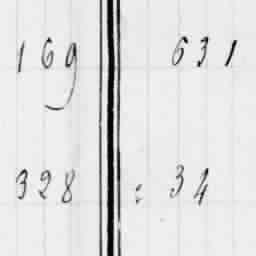 169 631
328 : 34